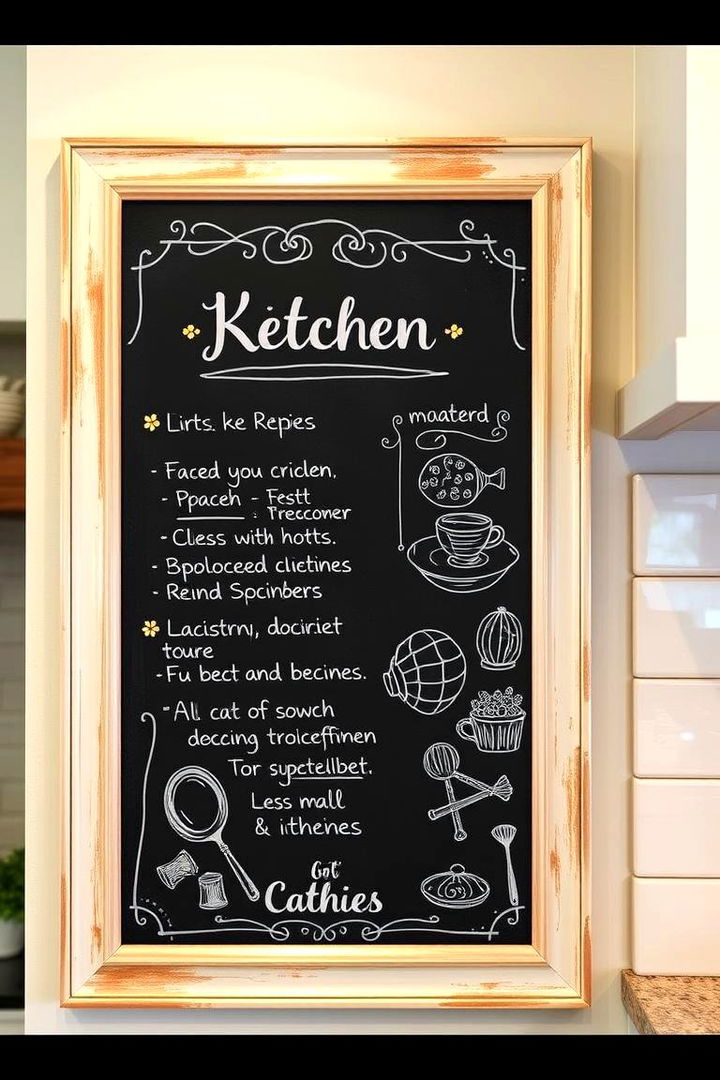 Ketchen
Lirts. ke Repies
maaterd
- Faced you criclen,
- Ppaceh - Festt
: Trecconer
- Cless with hotts.
- Bpoloceed clietines
- Reind Spcinbers
Lacistrnı, dociriet
toure
- Fu bect and becines.
- All cat of sowch
deccing troiceffinen
Tor supctellbet.
Less mall
& itheines
Got
Cathies